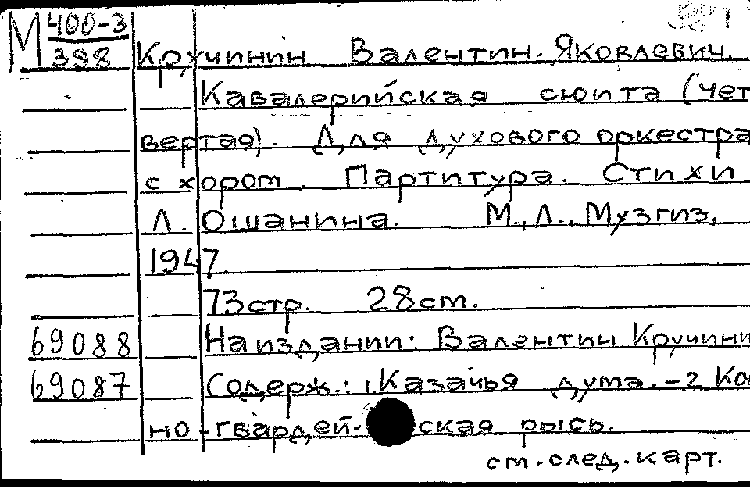 М 400-3
398
Кручинин Валентин Яковлевич.
Кавалерийская сюита (чет
вертая). Для духового оркестра
с хором. Партитура. Стихи
Л. Ошанина. М.,Л., Музгиз,
1947.
73стр. 28см.
69088 На издании: Валентин Кручини
69087 Содерж.: 1.Казачья дума.-2 Ко
но-гвардей-ская рысь.
см.след.карт.